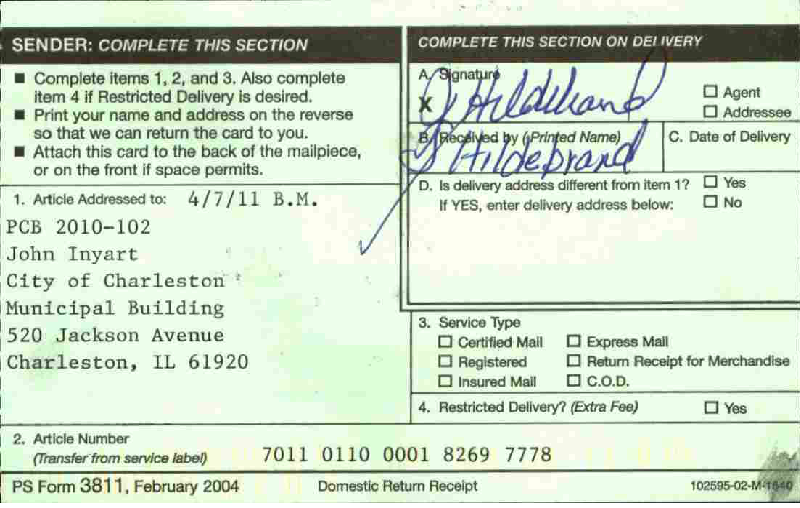 SENDER: COMPLETE THIS SECTION
■ Complete items 1, 2, and 3. Also complete
item 4 if Restricted Delivery is desired.
■ Print your name and address on the reverse
so that we can return the card to you.
■ Attach this card to the back of the mailpiece,
or on the front if space permits.
1. Article Addressed to: 4/7/11 B.M.
PCB 2010-102
John Inyart
City of Charleston
Municipal Building
520 Jackson Avenue
Charleston, IL 61920
2. Article Number
(Transfer from service label) 7011 0110 0001 8269 7778
COMPLETE THIS SECTION ON DELIVERY
A. Signature
X J Hildebrand
☐ Agent
☐ Addressee
B. Received by (Printed Name)
J Hildebrand
C. Date of Delivery
D. Is delivery address different from item 1? ☐ Yes
If YES, enter delivery address below: ☐ No
3. Service Type
☐ Certified Mail ☐ Express Mail
☐ Registered ☐ Return Receipt for Merchandise
☐ Insured Mail ☐ C.O.D.
4. Restricted Delivery? (Extra Fee) ☐ Yes
PS Form 3811, February 2004 Domestic Return Receipt 102595-02-M-1540